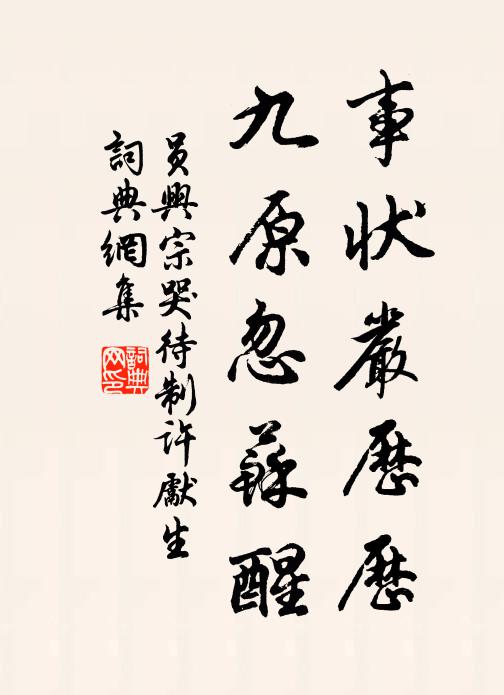 事狀嚴歷歷
九原忽蘇醒
員興宗哭待制許獻生
詞典網集
詞典
网印